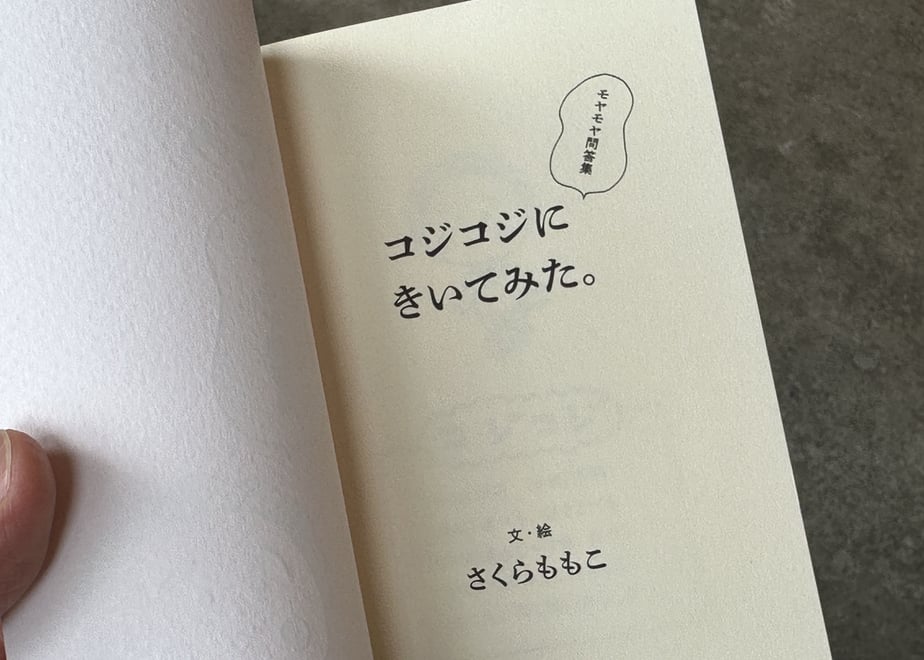 モヤモヤ問答集
コジコジに
きいてみた。
文・絵
さくらももこ